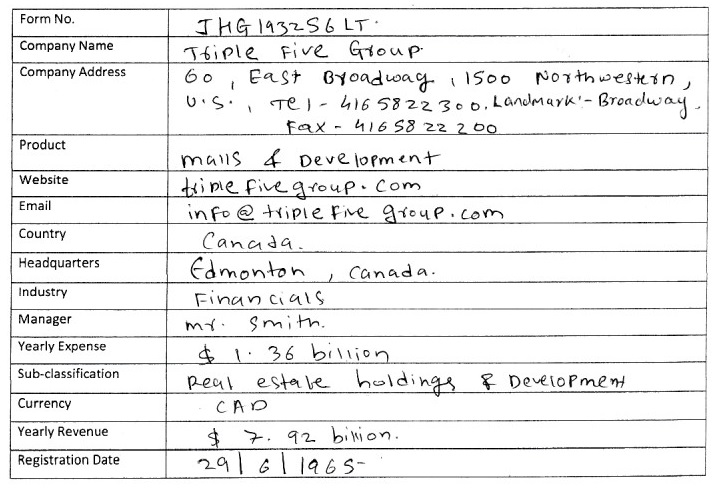 Form No. JHG193256LT.
Company Name Triple Five Group
Company Address 60, East Broadway, 1500 Northwestern,
U.S., Tel - 4165822300. Landmark:- Broadway.
Fax - 4165822200
Product malls & Development
Website triplefivegroup.com
Email info@triplefivegroup.com
Country Canada.
Headquarters Edmonton, Canada.
Industry Financials
Manager mr. Smith.
Yearly Expense $ 1.36 billion
Sub-classification Real estate holdings & Development
Currency CAD
Yearly Revenue $ 7.92 billion.
Registration Date 29/6/1965